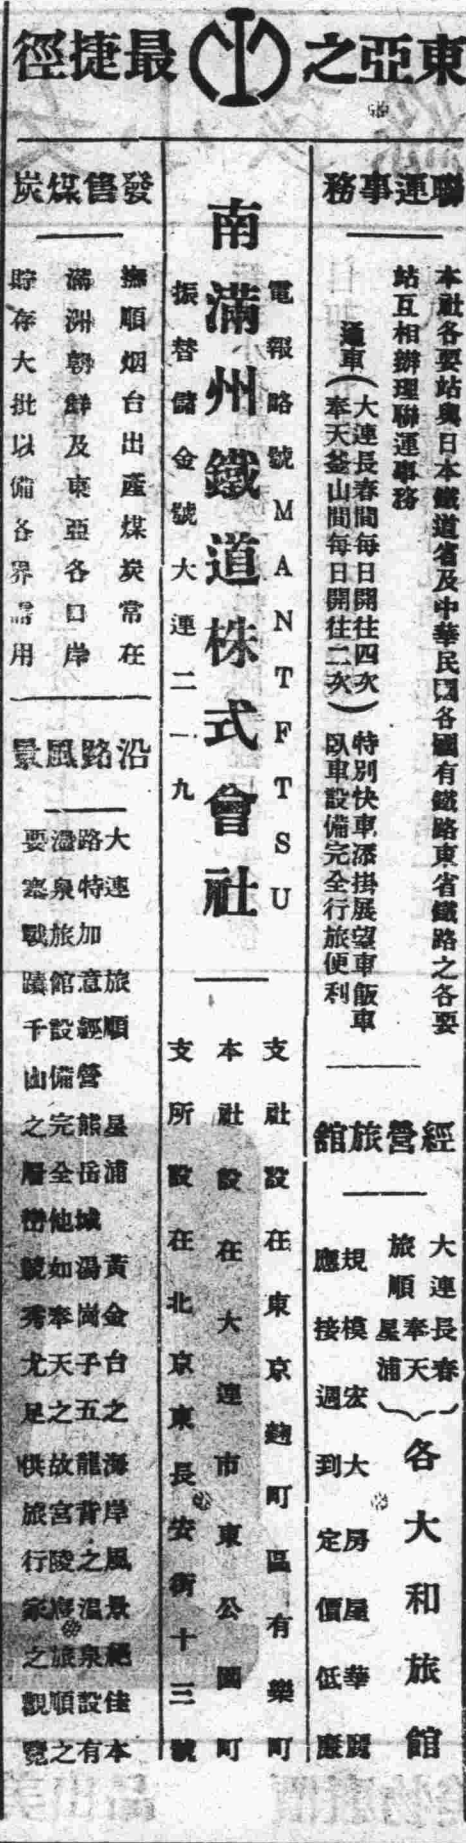 東亞之最捷徑
聯運事務
本社各要站與日本鐵道省及中華民國各國有鐵路東省鐵路之各要
站互相辦理聯運事務
通車（大連長春間每日開往四次
奉天釜山間每日開往二次）
特別快車添掛展望車飯車
臥車設備完全行旅便利
經營旅館
大連長春
旅順奉天
星浦
各大和旅館
規模宏大房屋華麗
應接週到定價低廉
電報略號MANTFTSU
南滿州鐵道株式會社
振替儲金號大連二一九
支社設在東京麴町區有樂町
本社設在大連市東公園町
支所設在北京東長安街十三號
發售煤炭
撫順烟台出產煤炭常在
滿洲朝鮮及東亞各口岸
貯存大批以備各界需用
沿路風景
大連　旅順　星浦　黃金台之海岸風景絕佳本
路特加意經營熊岳城湯崗子五龍背之溫泉設有
溫泉旅館設備完全他如奉天之故宮陵寢旅順之
要塞戰蹟千山之層巒競秀尤足供旅行家之觀覽